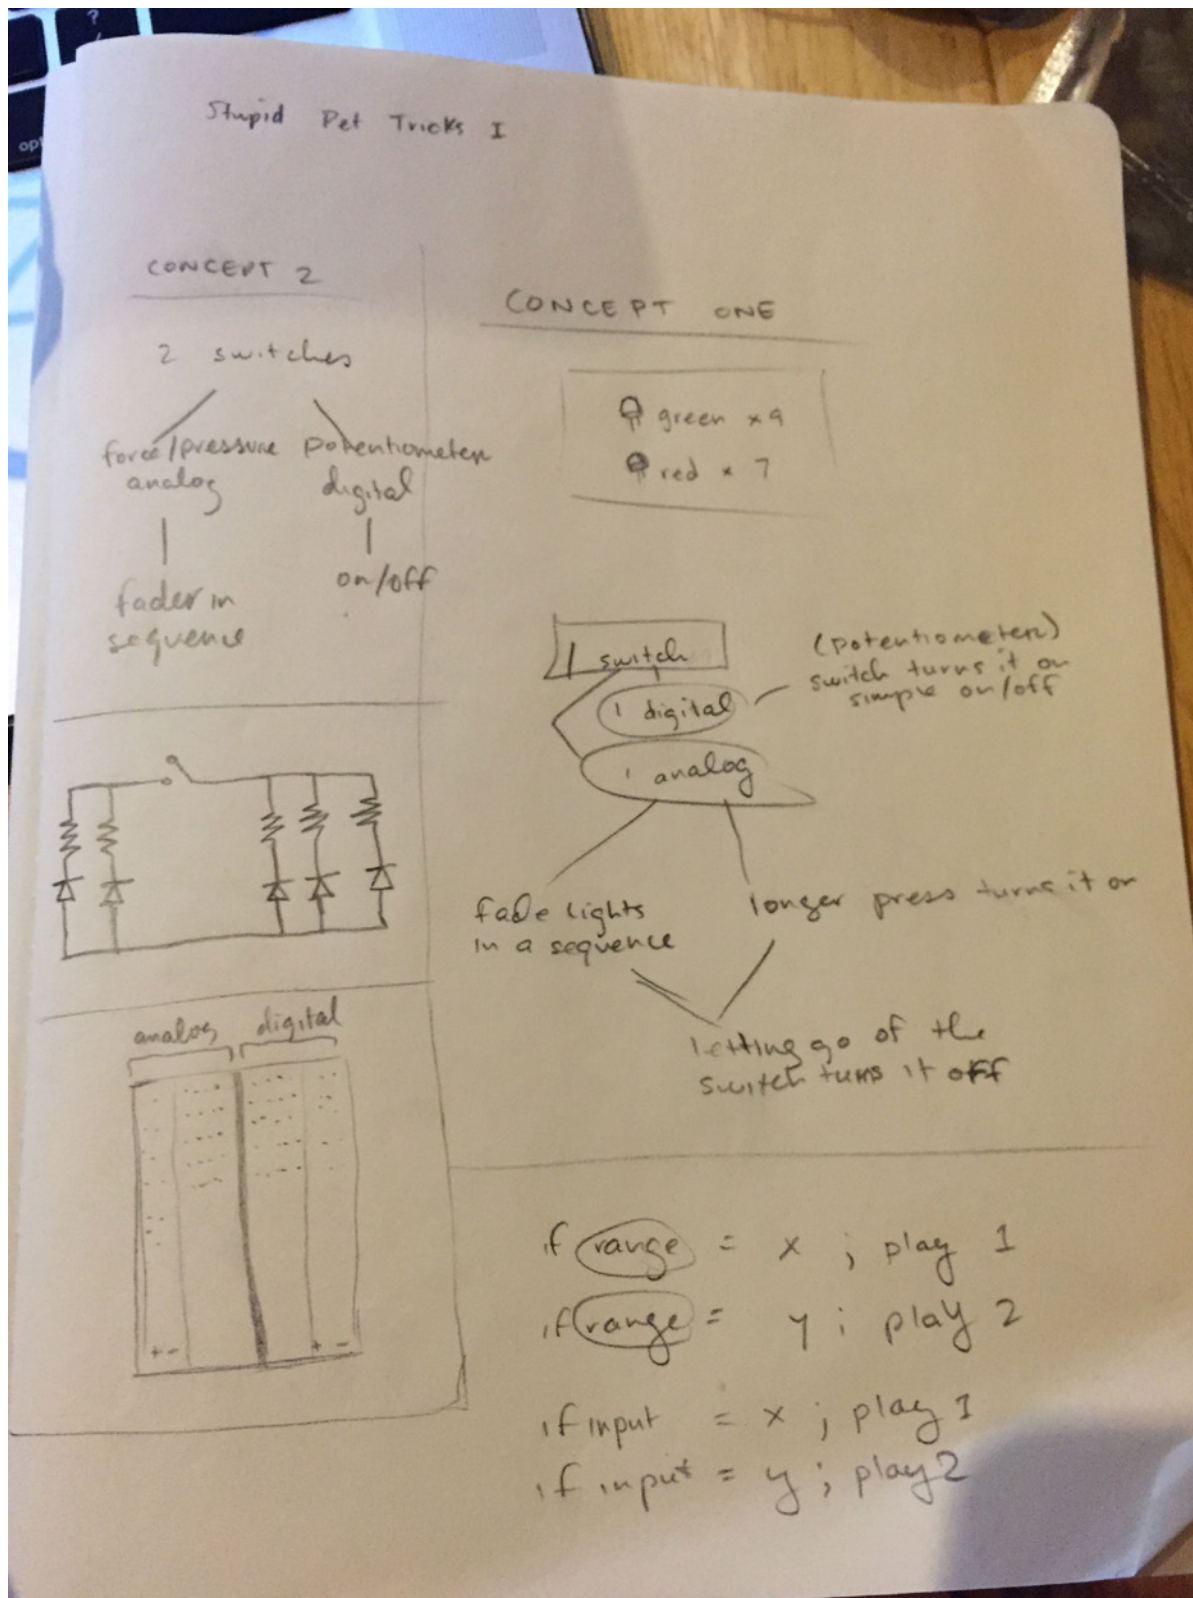 ?
/
opt
Stupid Pet Tricks I
CONCEPT 2
2 switches
force/pressure
analog
potentiometer
digital
fader in
sequence
on/off
analog
digital
+ -
+ -
CONCEPT ONE
green x 9
red x 7
1 switch
1 digital
1 analog
(potentiometer)
switch turns it on
simple on/off
fade lights
in a sequence
longer press turns it on
letting go of the
switch turns it off
if range = x ; play 1
if range = y ; play 2
if input = x ; play 1
if input = y ; play 2